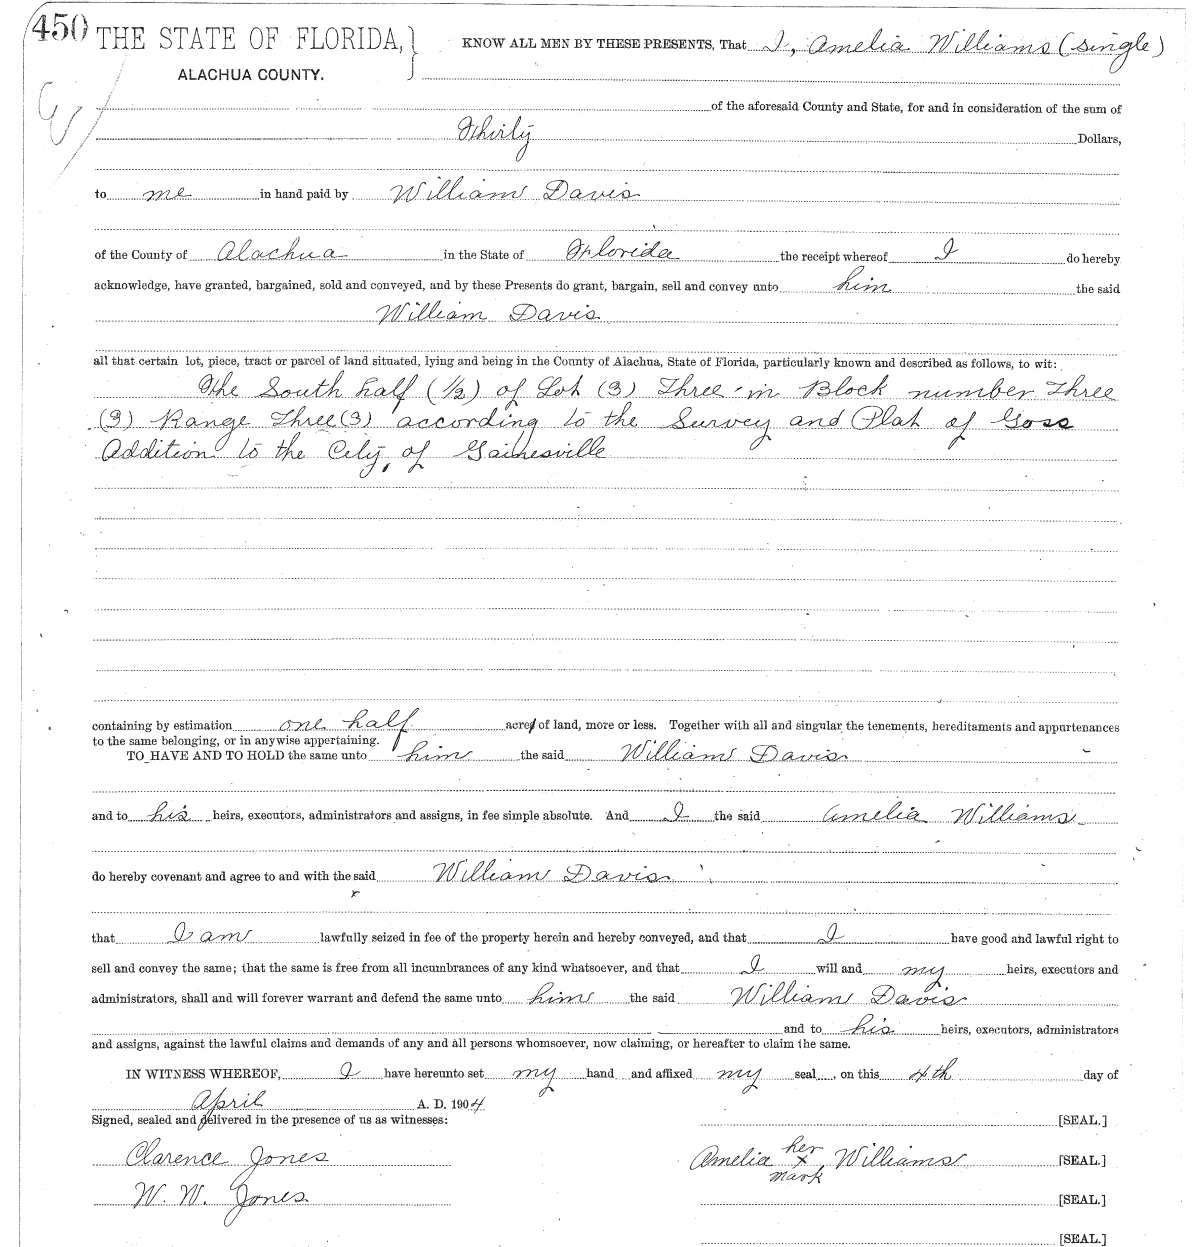 450 THE STATE OF FLORIDA, } KNOW ALL MEN BY THESE PRESENTS, That I, Amelia Williams (single)
ALACHUA COUNTY.
of the aforesaid County and State, for and in consideration of the sum of
Thirty Dollars,
to me in hand paid by William Davis
of the County of Alachua in the State of Florida the receipt whereof I do hereby
acknowledge, have granted, bargained, sold and conveyed, and by these Presents do grant, bargain, sell and convey unto him the said
William Davis
all that certain lot, piece, tract or parcel of land situated, lying and being in the County of Alachua, State of Florida, particularly known and described as follows, to wit:
The South half (1/2) of Lot (3) Three in Block number Three
(3) Range Three (3) according to the Survey and Plat of Goss
Addition to the City of Gainesville
containing by estimation one half acre of land, more or less. Together with all and singular the tenements, hereditaments and appurtenances
to the same belonging, or in anywise appertaining.
TO HAVE AND TO HOLD the same unto him the said William Davis
and to his heirs, executors, administrators and assigns, in fee simple absolute. And I the said Amelia Williams
do hereby covenant and agree to and with the said William Davis
that I am lawfully seized in fee of the property herein and hereby conveyed, and that I have good and lawful right to
sell and convey the same; that the same is free from all incumbrances of any kind whatsoever, and that I will and my heirs, executors and
administrators, shall and will forever warrant and defend the same unto him the said William Davis
and to his heirs, executors, administrators
and assigns, against the lawful claims and demands of any and all persons whomsoever, now claiming, or hereafter to claim the same.
IN WITNESS WHEREOF, I have hereunto set my hand and affixed my seal, on this 4th day of
April A. D. 1904
Signed, sealed and delivered in the presence of us as witnesses: [SEAL.]
her
Clarence Jones Amelia x Williams [SEAL.]
mark
W. W. Jones [SEAL.]
[SEAL.]